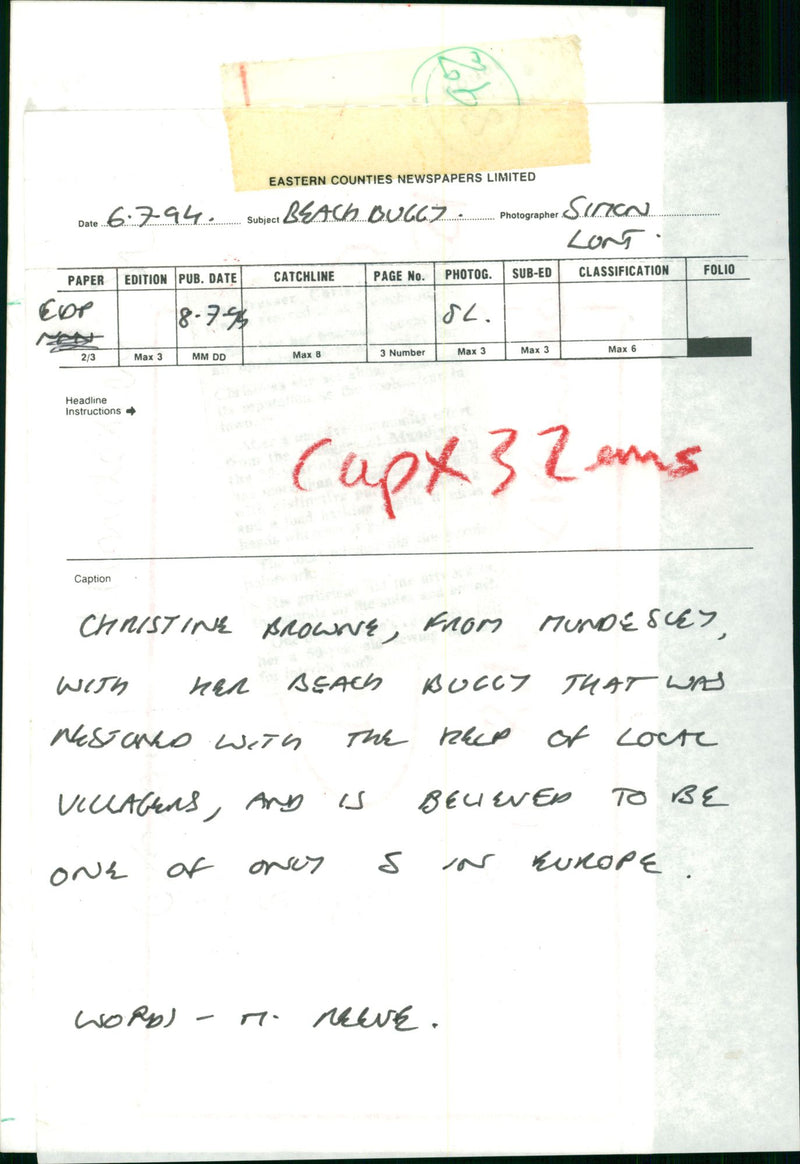 EASTERN COUNTIES NEWSPAPERS LIMITED
Date 6.7.94. Subject BEACH BUGGY. Photographer SIMON
LONT.
PAPER EDITION PUB. DATE CATCHLINE PAGE No. PHOTOG. SUB-ED CLASSIFICATION FOLIO
EDP 8.7.94 SL.
2/3 Max 3 MM DD Max 8 3 Number Max 3 Max 3 Max 6
Headline
Instructions
Capt x 32 ems
Caption
CHRISTINE BROWNE, FROM MUNDESLEY,
WITH HER BEACH BUGGY THAT WAS
RESTORED WITH THE HELP OF LOCAL
VILLAGERS, AND IS BELIEVED TO BE
ONE OF ONLY 5 IN EUROPE.
WORDS - M. REEVE.